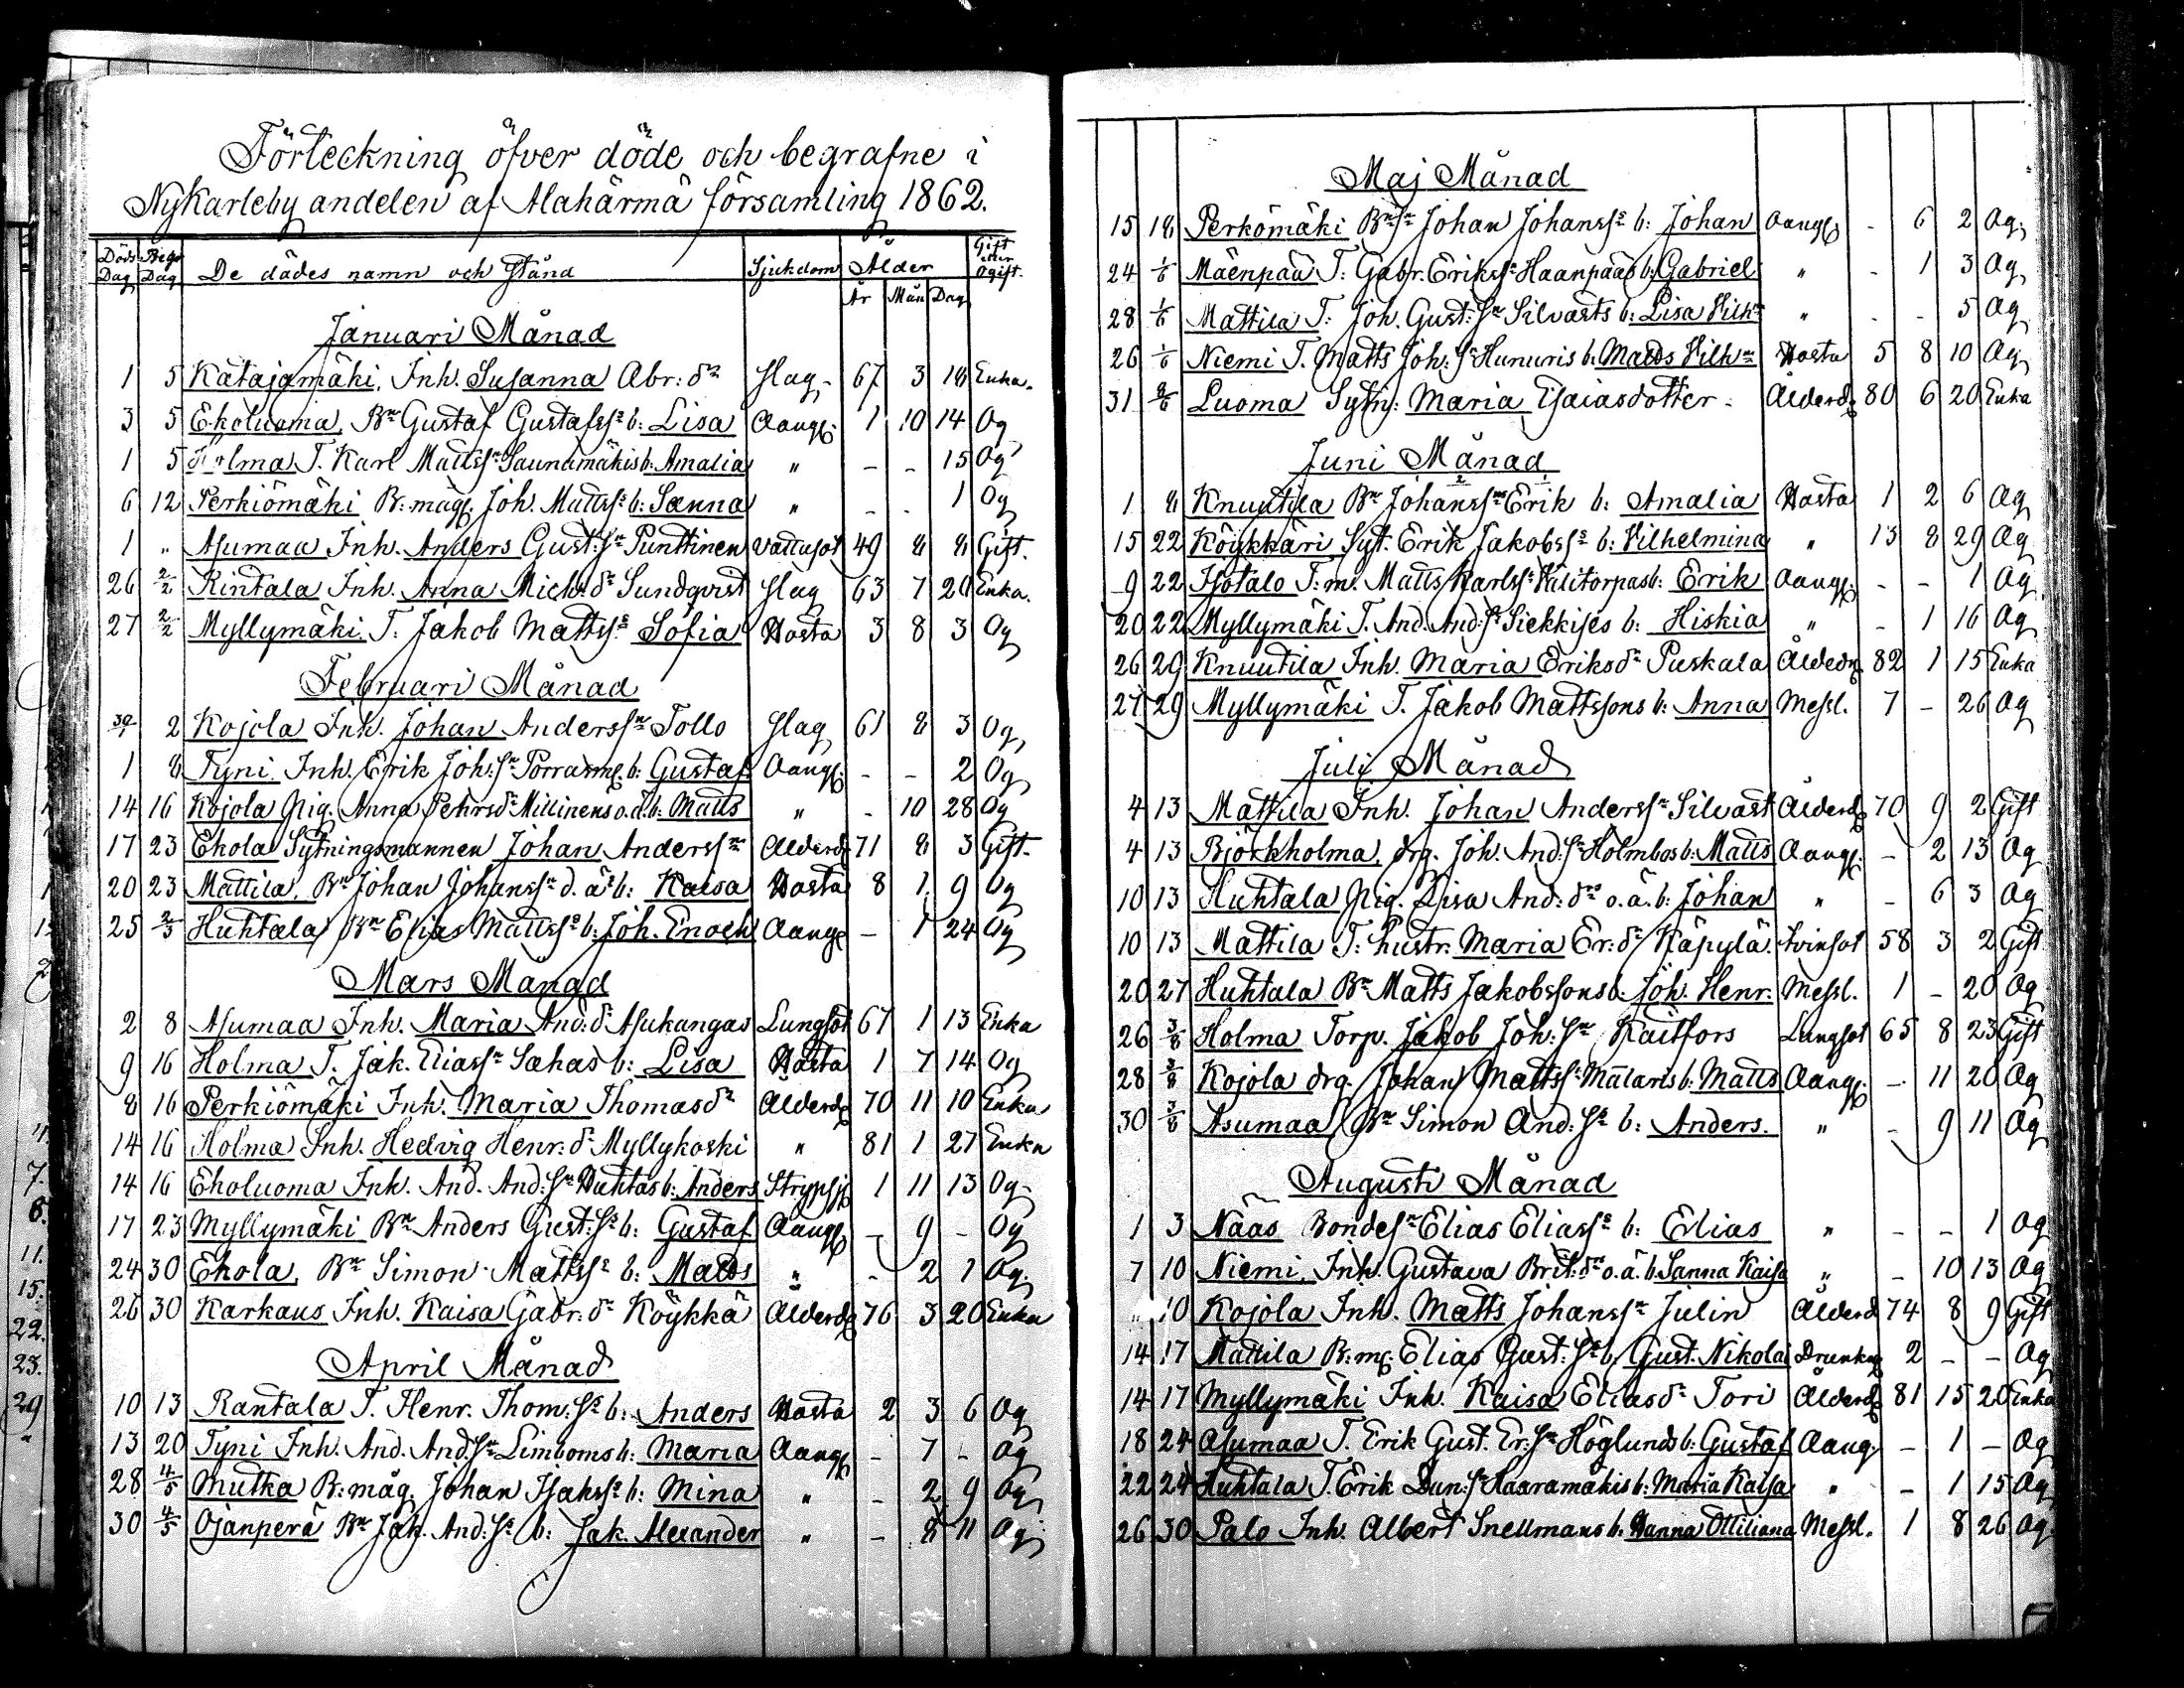 Förteckning öfver döde och begrafne i
Nykarleby andelen af Alahärmä församling 1862.
Döds Dag Begr Dag De dödes namn och stånd Sjukdom Ålder Gift eller Ogift.
År Mån Dag
Januari Månad
1 5 Katajamäki, Inh. Susanna Abr: dr Slag 67 3 18 Enka.
3 5 Ekoluoma, Bn Gustaf Gustafss: b: Lisa Aangf. 1 10 14 Og
1 5 Holma T. Karl Mattssn Saunamäkis b: Amalia " - - 15 Og
6 12 Perkiömäki B: måg. Joh. Mattss: b: Sanna " - - 1 Og
1 " Asumaa Inh. Anders Gust: sn Punttinen Vattusot 49 8 8 Gift.
26 2/2 Rintala Inh. Anna Mich: dr Sundqvist Slag 63 7 20 Enka.
27 2/2 Myllymäki T. Jakob Mattss: Sofia Hosta 3 8 3 Og
Februari Månad
30/1 2 Kojola Inh. Johan Anderssn Tollo Slag 61 8 3 Og
1 8 Tyni Inh. Erik Joh: sn b: Gustaf Aangf. - - 2 Og
14 16 Kojola Pig. Anna Pehrsdr o. ä. b: Matts " - 10 28 Og
17 23 Ekola Sytningsmannen Johan Anderssn Ålderd 71 8 3 Gift.
20 23 Mattila, Bn Johan Johanssn d. ä: b: Kaisa Hosta 8 1 9 Og
25 2/3 Huhtala Bn Elias Mattss: b: Joh. Enoch Aangf - 1 24 Og
Mars Månad
2 8 Asumaa Inh. Maria And: dr Asukangas Lungsot 67 1 13 Enka
9 16 Holma T. Jak. Eliassn Sahas b: Lisa Hosta 1 7 14 Og
8 16 Perkiömäki Inh. Maria Thomasdr Ålderd 70 11 10 Enka
14 16 Holma Inh. Hedvig Henr: dr Myllykoski " 81 1 27 Enka
14 16 Ekoluoma Inh. And. And: sn Huhtas b: Anders Strypsj 1 11 13 Og
17 23 Myllymäki Bn Anders Gust: ss b: Gustaf Aangf - 9 - Og
24 30 Ekola, Bn Simon Mattss: b: Matts " - 2 1 Og
26 30 Karhaus Inh. Kaisa Gabr: dr Köykkä Ålderd 76 3 20 Enka
April Månad
10 13 Rantala T. Henr. Thom: ss b: Anders Hosta 2 3 6 Og
13 20 Tyni Inh. And. And: sn Limboms b: Maria Aangf - 7 - Og
28 4/5 Mutka B: måg. Johan Isakss: b: Mina " - 2 9 Og
30 4/5 Ojanperä Bn Jak. And: ss b: Jak. Alexander " - 8 11 Og
Maj Månad
15 18 Perkömäki Bn sn Johan Johanss: b: Johan Aangf - 6 2 Og
24 1/6 Mäenpää T: Gabr. Erikss: Haanpääs b: Gabriel " - 1 3 Og
28 1/6 Mattila T: Joh. Gust: sn Silvasts b: Lisa Vilhna " - - 5 Og
26 1/6 Niemi T. Matts Joh: sn Hunuris b: Matts Vilhm Hosta 5 8 10 Og
31 8/6 Luoma Sytn: Maria Esaiasdotter Ålderd 80 6 20 Enka
Juni Månad
1 8 Knuutila Bn Johanssns Erik b: Amalia Hosta 1 2 6 Og
15 22 Köykkäri Syt. Erik Jakobss: b: Vilhelmina " 13 8 29 Og
9 22 Isotalo T: m. Matts Karlss: b: Erik Aangf. - - 1 Og
20 22 Myllymäki T. And. And: ss Siekkises b: Hiskia " - 1 16 Og
26 29 Knuutila Inh. Maria Eriksdr Puskala Ålderd 82 1 15 Enka
27 29 Myllymäki T. Jakob Mattssons b: Anna Messl. 7 - 26 Og
Juli Månad
4 13 Mattila Inh. Johan Anderssn Silvast Ålderd 70 9 2 Gift
4 13 Björkholma, drg. Joh. And: sn Holmbos b: Matts Aangf. - 2 13 Og
10 13 Huhtala Pig. Lisa And: drs o. ä. b: Johan " - 6 3 Og
10 13 Mattila T: hustr. Maria Er: dr Käpylä Tvinsot 58 3 2 Gift
20 27 Huhtala Bn Matts Jakobssons b: Joh. Henr. Messl. 1 - 20 Og
26 3/8 Holma Torp. Jakob Joh: sn Kaitfors Lungsot 65 8 23 Gift
28 3/8 Kojola drg. Johan Mattss: Målaris b: Matts Aangf. - 11 20 Og
30 3/8 Asumaa Bn Simon And: ss b: Anders. " - 9 11 Og
Augusti Månad
1 3 Nääs Bondesn Elias Eliass: b: Elias " - - 1 Og
7 10 Niemi, Inh. Gustava Brit: drs o. ä. b. Sanna Kaisa " - 10 13 Og
" 10 Kojola Inh. Matts Johanssn Julin Ålderd 74 8 9 Gift
14 17 Mattila B: mg. Elias Gust: ss b: Gust. Nikolai Drunkng 2 - - Og
14 17 Myllymäki Inh. Kaisa Eliasdr Tori Ålderd 81 15 20 Enka
18 24 Asumaa T. Erik Gust. Er: sn Höglunds b: Gustaf Aang. - 1 - Og
22 24 Huhtala T. Erik b: Maria Kaisa " - 1 15 Og
26 30 Palo Inh. Albert Snellmans b: Hanna Ottiliana Messl. 1 8 26 Og